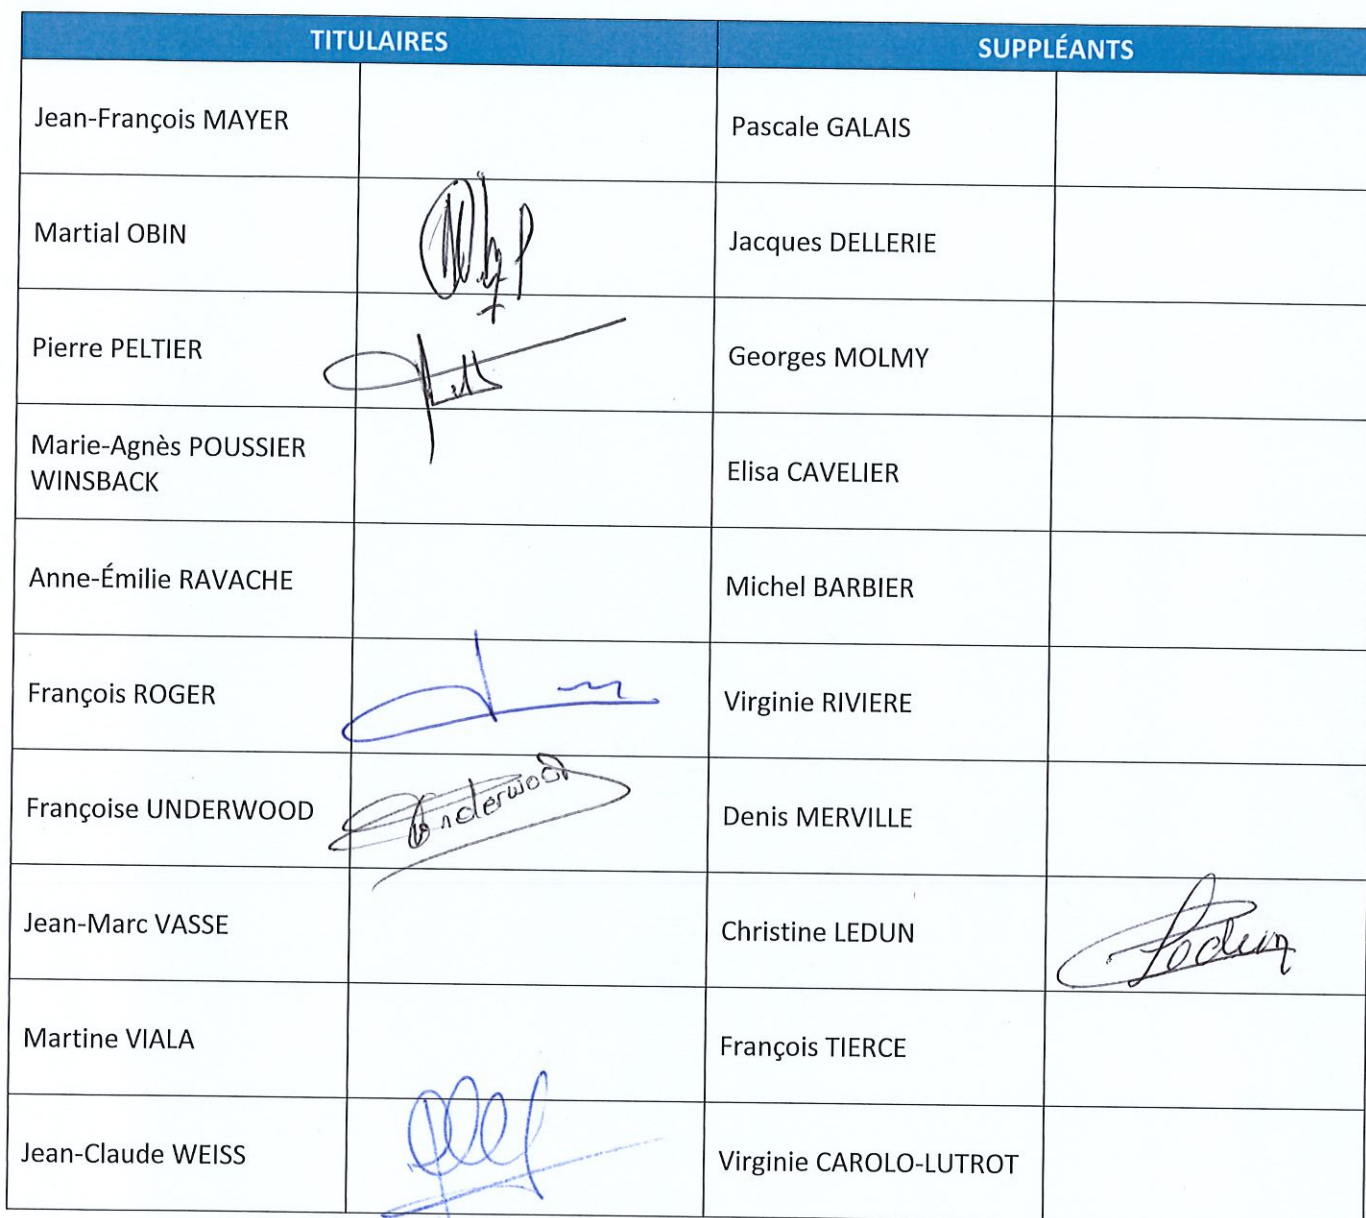 TITULAIRES SUPPLÉANTS
Jean-François MAYER Pascale GALAIS
Martial OBIN Jacques DELLERIE
Pierre PELTIER Georges MOLMY
Marie-Agnès POUSSIER
WINSBACK Elisa CAVELIER
Anne-Émilie RAVACHE Michel BARBIER
François ROGER Virginie RIVIERE
Françoise UNDERWOOD Underwood Denis MERVILLE
Jean-Marc VASSE Christine LEDUN Ledun
Martine VIALA François TIERCE
Jean-Claude WEISS Virginie CAROLO-LUTROT